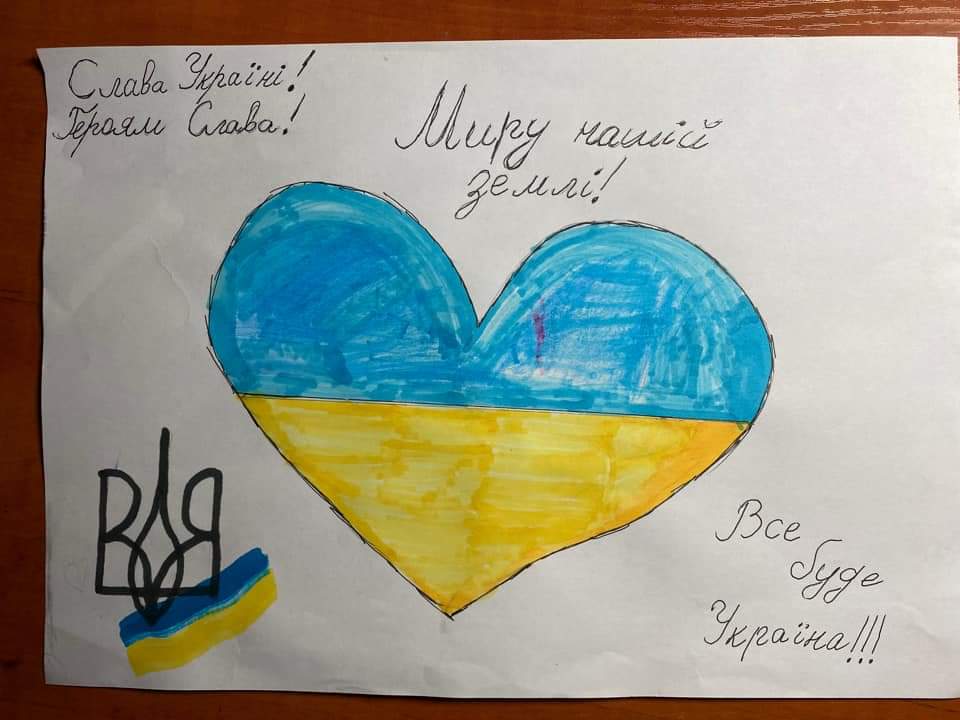 Слава Україні!
Героям Слава!
Миру нашій
землі!
Все
буде
Україна!!!